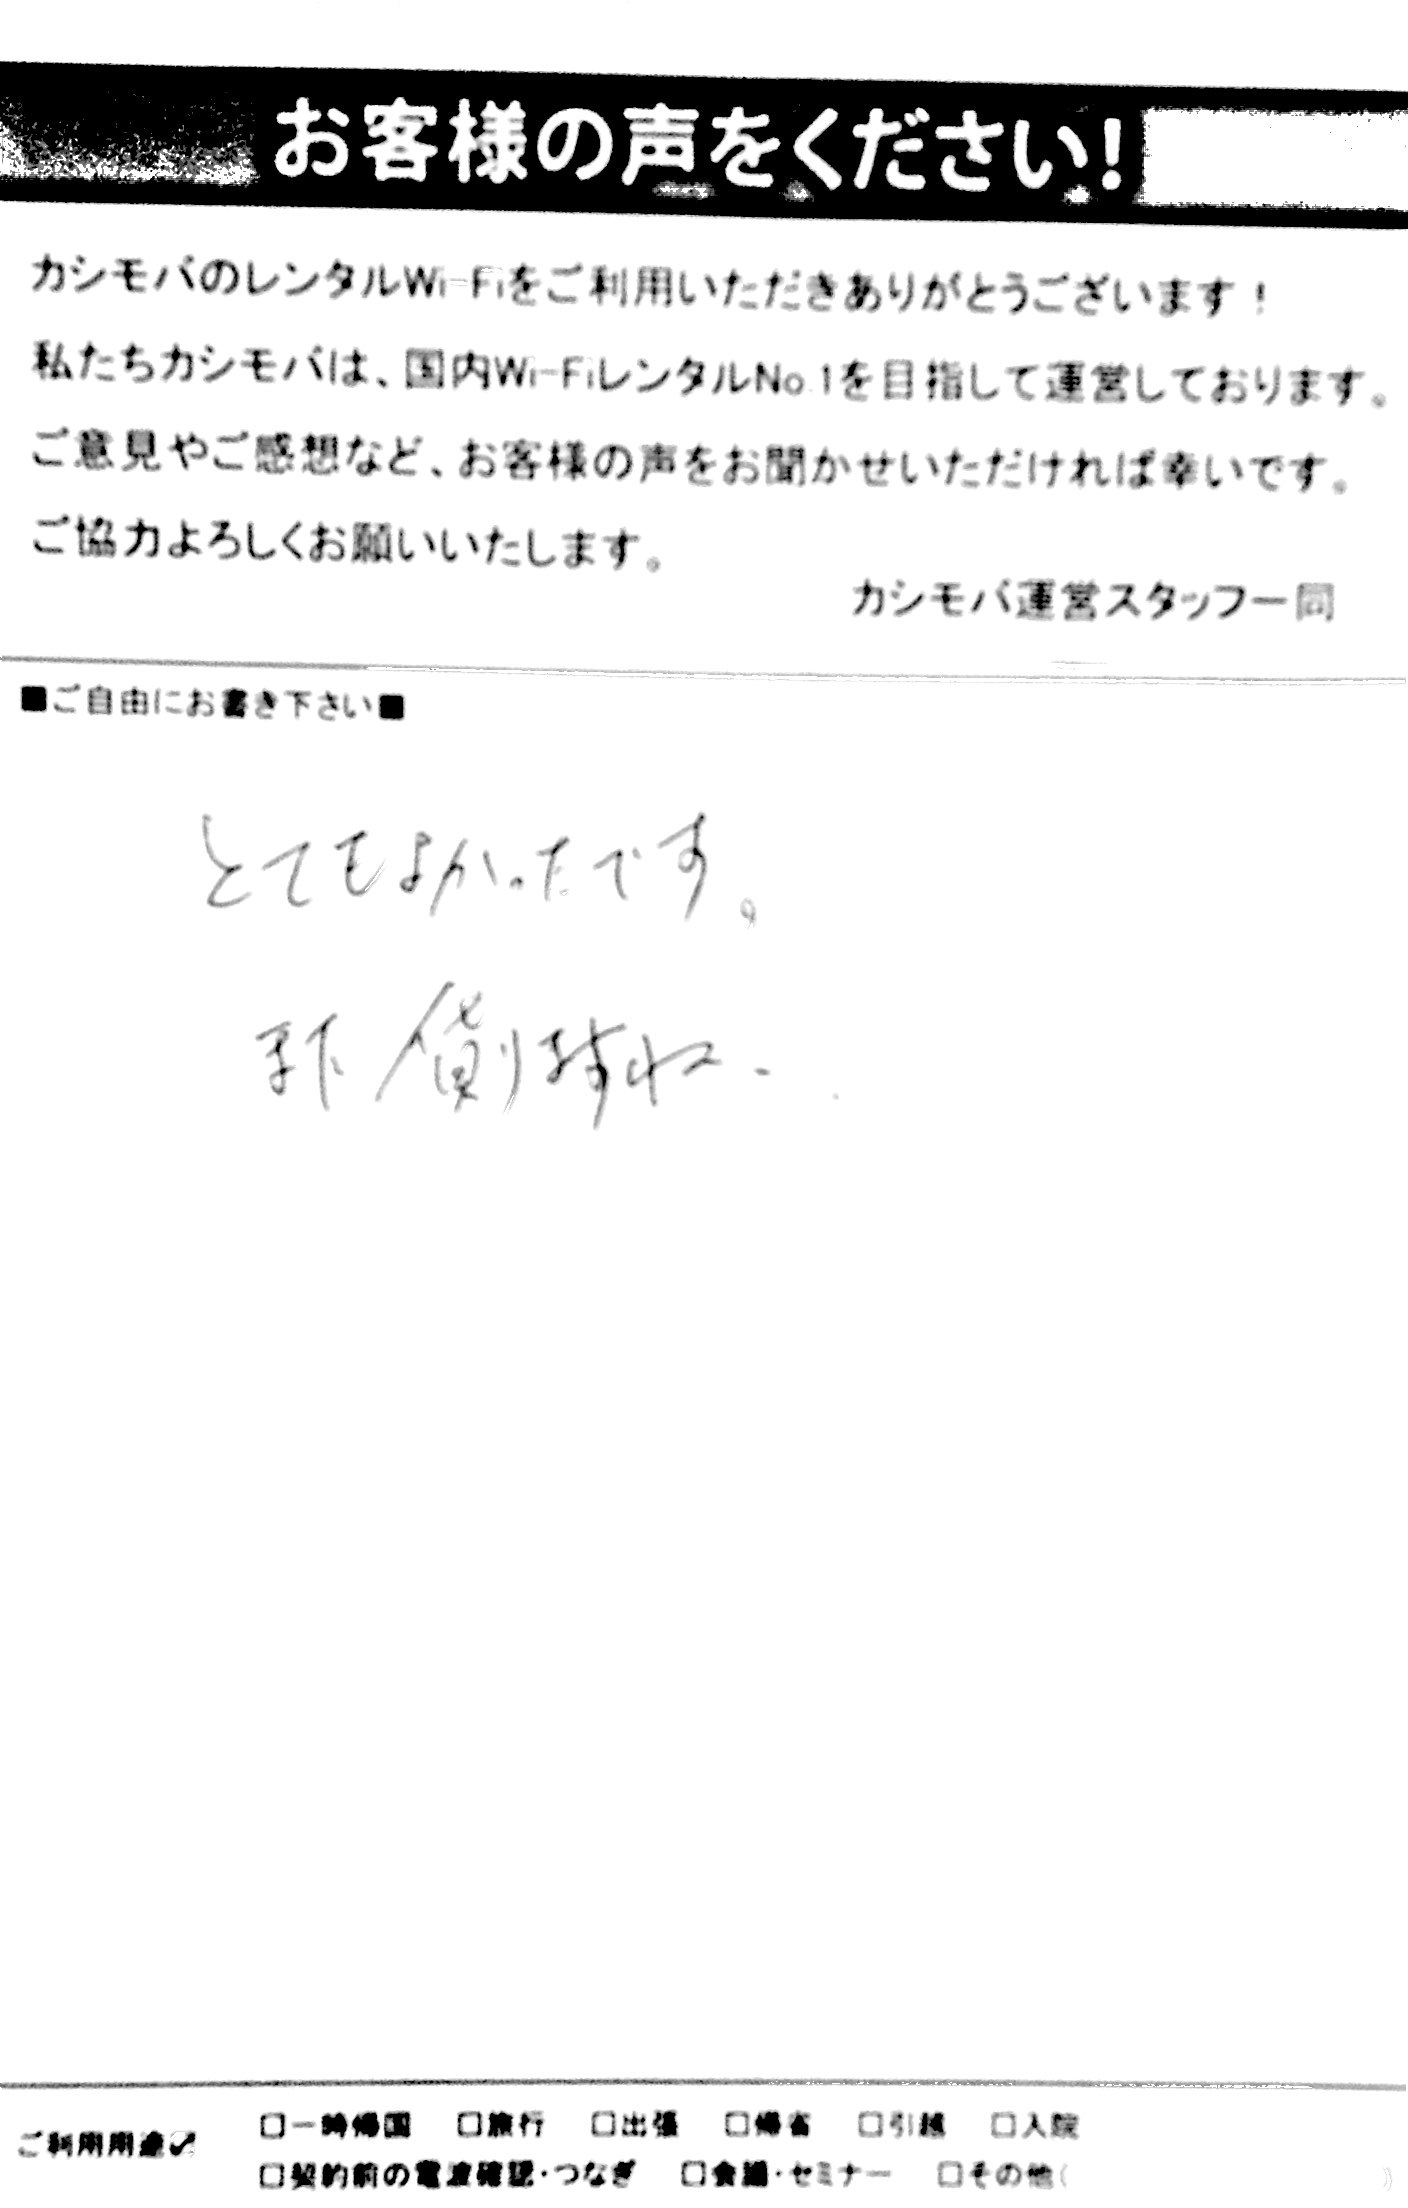 お客様の声をください!
カシモバのレンタルWi-Fiをご利用いただきありがとうございます!
私たちカシモバは、国内Wi-FiレンタルNo.1を目指して運営しております。
ご意見やご感想など、お客様の声をお聞かせいただければ幸いです。
ご協力よろしくお願いいたします。
カシモバ運営スタッフ一同
■ご自由にお書き下さい■
とてもよかったです。
また 借りますね.
ご利用用途☑ □一時帰国 □旅行 □出張 □帰省 □引越 □入院
□契約前の電波確認・つなぎ □会議・セミナー □その他( )